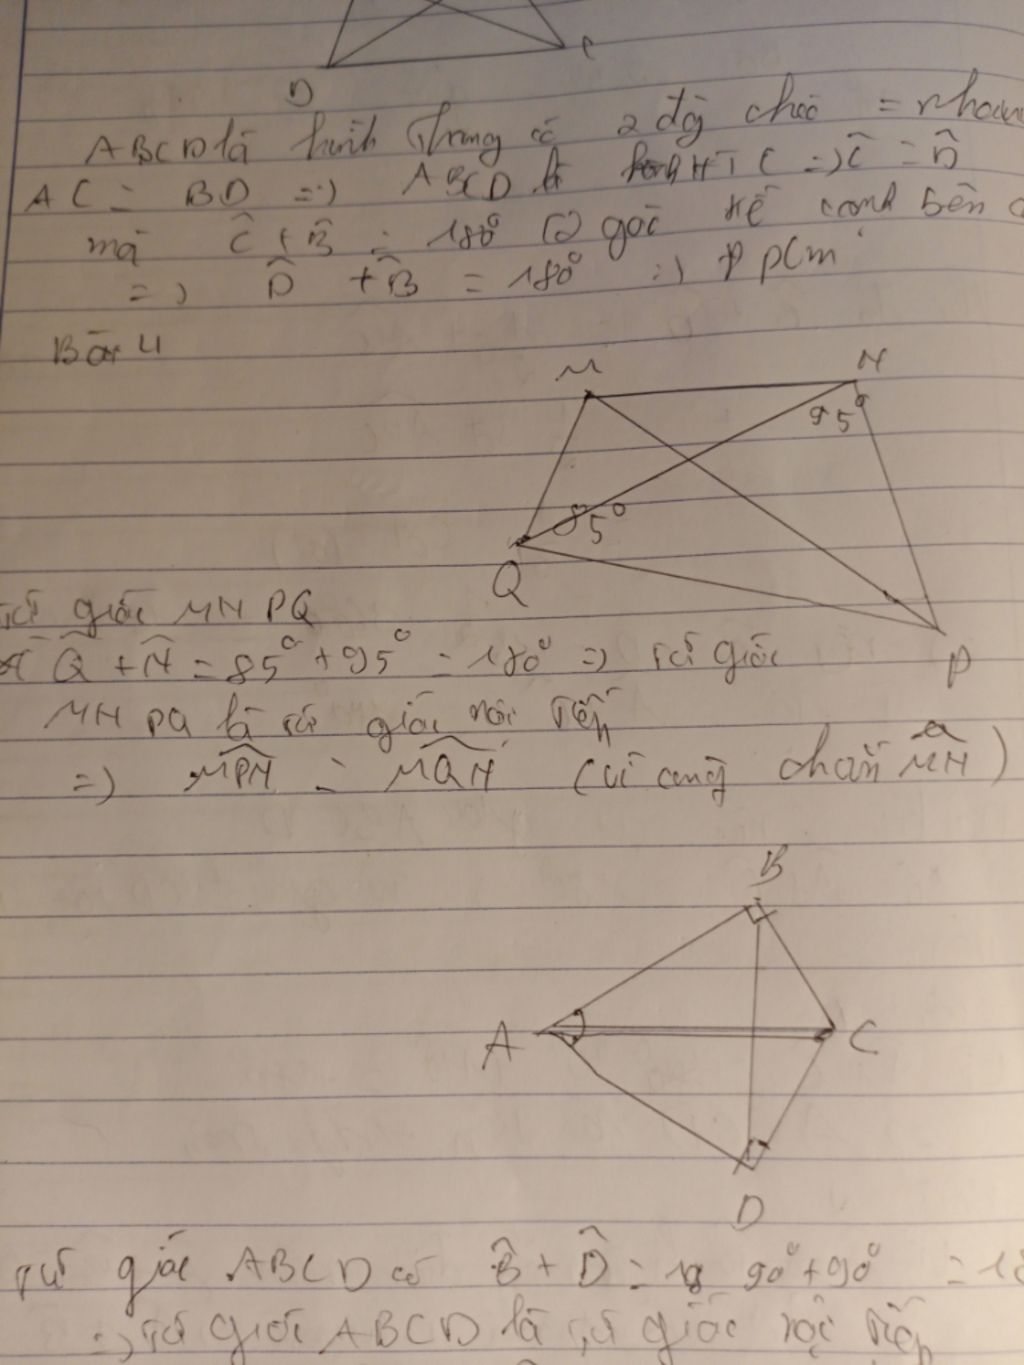 D
C
ABCD là hình thang có 2 đg chéo = nhau
AC = BD => ABCD là HTC => Ĉ = D̂
mà Ĉ + B̂ = 180° (2 góc kề cạnh bên
=> D̂ + B̂ = 180° => đpcm
Bài 4
M
N
95°
85°
Q
P
Tứ giác MNPQ
Q̂ + N̂ = 85° + 95° = 180° => tứ giác
MNPQ là tứ giác nội tiếp
=> MPN = MQN (vì cùng chắn MN)
B
A
C
D
Tứ giác ABCD có B̂ + D̂ = 90° + 90° = 18
=> tứ giác ABCD là tứ giác nội tiếp